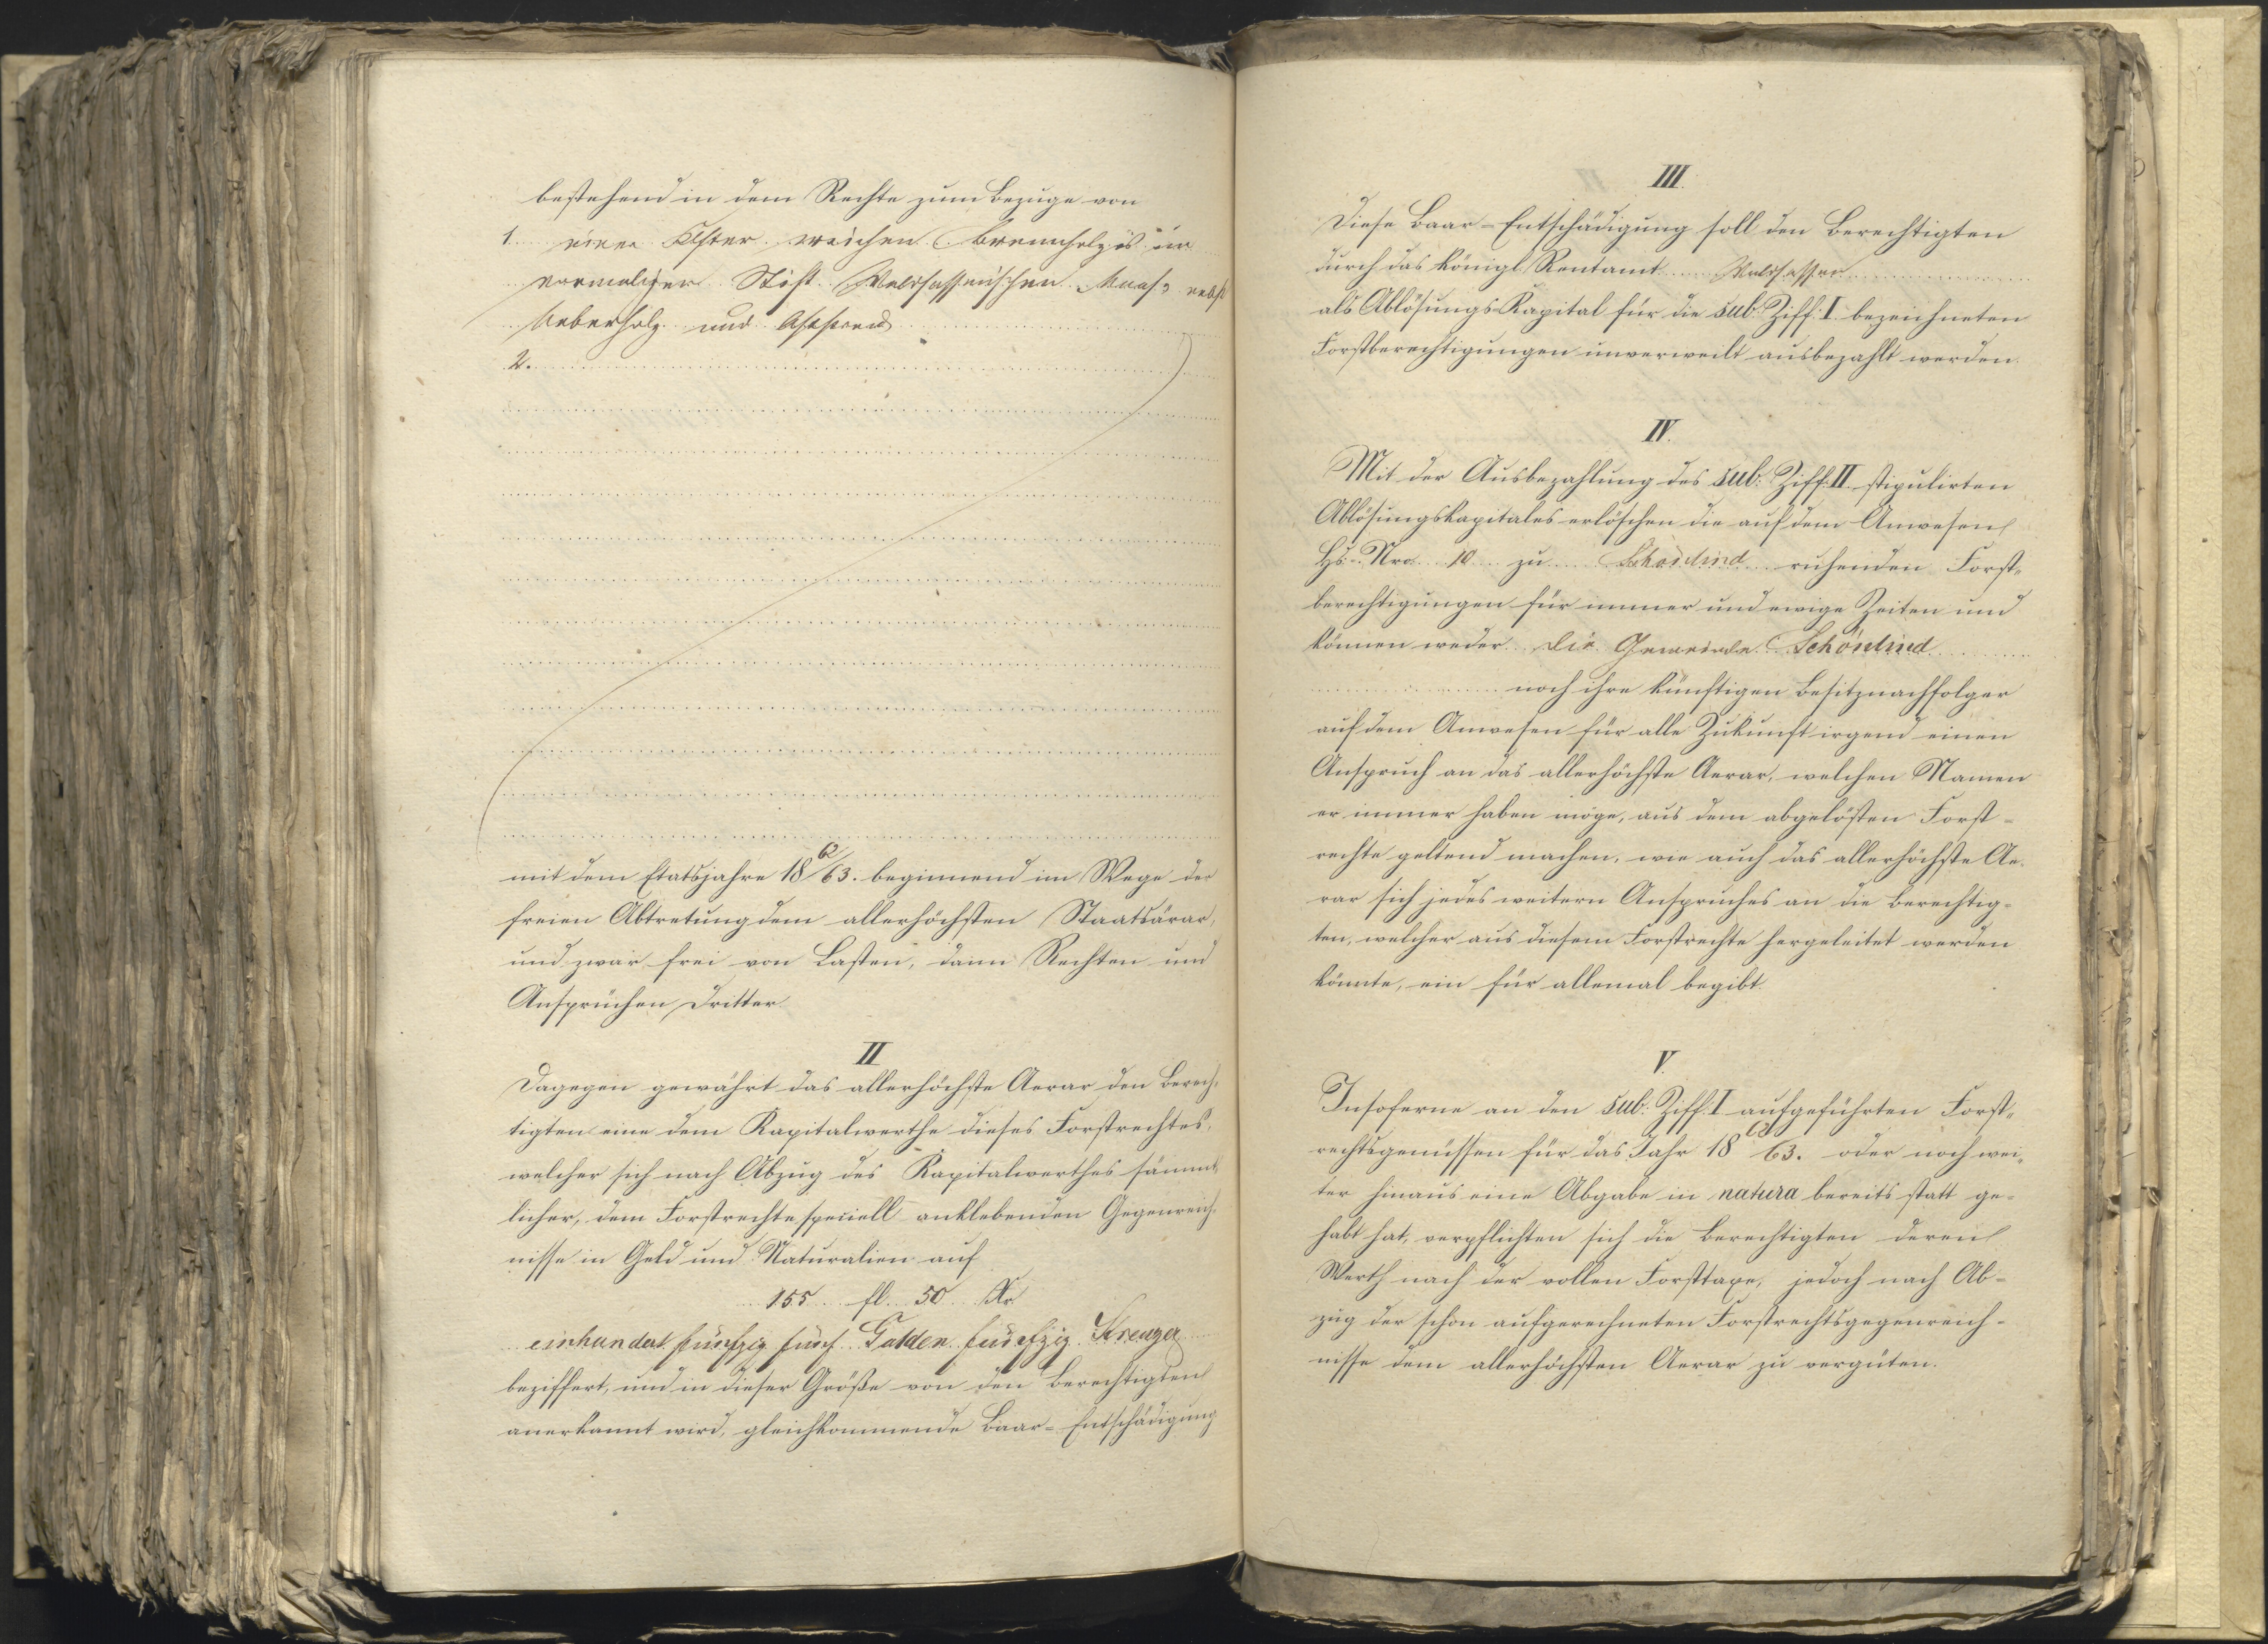 bestehend in dem Rechte zum Bezuge von
1. einer Klfter weichen Brennholzes im
vormaligen Stift Waldsassenischen Maaße nebst
Ueberholz und Afterreis
2.
mit dem Etatsjahre 18 62/63. beginnend im Wege der
freien Abtretung dem allerhöchsten Staatsärar,
und zwar frei von Lasten, dann Rechten und
Ansprüchen Dritter.
II
Dagegen gewährt das allerhöchste Aerar den Berech-
tigten eine dem Kapitalwerthe dieses Forstrechtes,
welcher sich nach Abzug des Kapitalwerthes sämmt-
licher, dem Forstrechte speciell anklebenden Gegenreich-
nisse in Geld und Naturalien auf
155 fl. 50 Kr.
einhundert fünfzig fünf Gulden fünfzig Kreuzer
beziffert, und in dieser Größe von den Berechtigten
anerkannt wird, gleichkommende Baar-Entschädigung
III.
Diese Baar-Entschädigung soll den Berechtigten
durch das königl. Rentamt Waldsassen
als Ablösungs-Kapital für die sub. Ziff. I. bezeichneten
Forstberechtigungen unverweilt ausbezahlt werden.
IV.
Mit der Ausbezahlung des sub. Ziff. II. stipulirten
Ablösungskapitales erlöschen die auf dem Anwesen
Hs.-Nro. 10 zu Schönlind ruhenden Forst-
berechtigungen für immer und ewige Zeiten und
können weder die Gemeinde Schönlind
noch ihre künftigen Besitznachfolger
auf dem Anwesen für alle Zukunft irgend einen
Anspruch an das allerhöchste Aerar, welchen Namen
er immer haben möge, aus dem abgelösten Forst-
rechte geltend machen, wie auch das allerhöchste Ae-
rar sich jedes weitern Anspruches an die Berechtig-
ten, welcher aus diesem Forstrechte hergeleitet werden
könnte, ein für allemal begibt.
V.
Insoferne an den sub. Ziff. I aufgeführten Forst-
rechtsgenüssen für das Jahr 18 62/63. oder noch wei-
ter hinaus eine Abgabe in natura bereits statt ge-
habt hat, verpflichten sich die Berechtigten deren
Werth nach der vollen Forsttaxe, jedoch nach Ab-
zug der schon aufgerechneten Forstrechtsgegenreich-
nisse dem allerhöchsten Aerar zu vergüten.